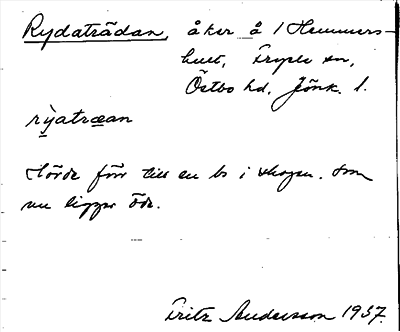 Rydaträdan, åker å 1 Hemmers-
hult, Tryele sn,
Östbo hd. Jönk. l.
rỳatræan
Hörde förr till en bs i skogen. Som
nu ligger öde.
Fritz Andersson 1937.